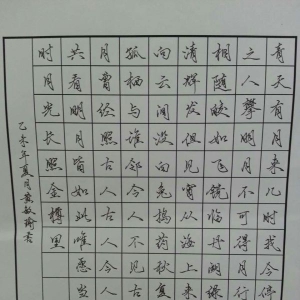 青天有月来几时我今停
之人攀明月不可得月行
相随皎如飞镜临丹阙绿
清辉发但见宵从海上来
向云间没白兔捣药秋复
孤栖与谁邻今人不见古
月曾经照古人古人今人
共看明月皆如此唯愿当
时月光长照金樽里
乙未年夏月黄敏瑜书